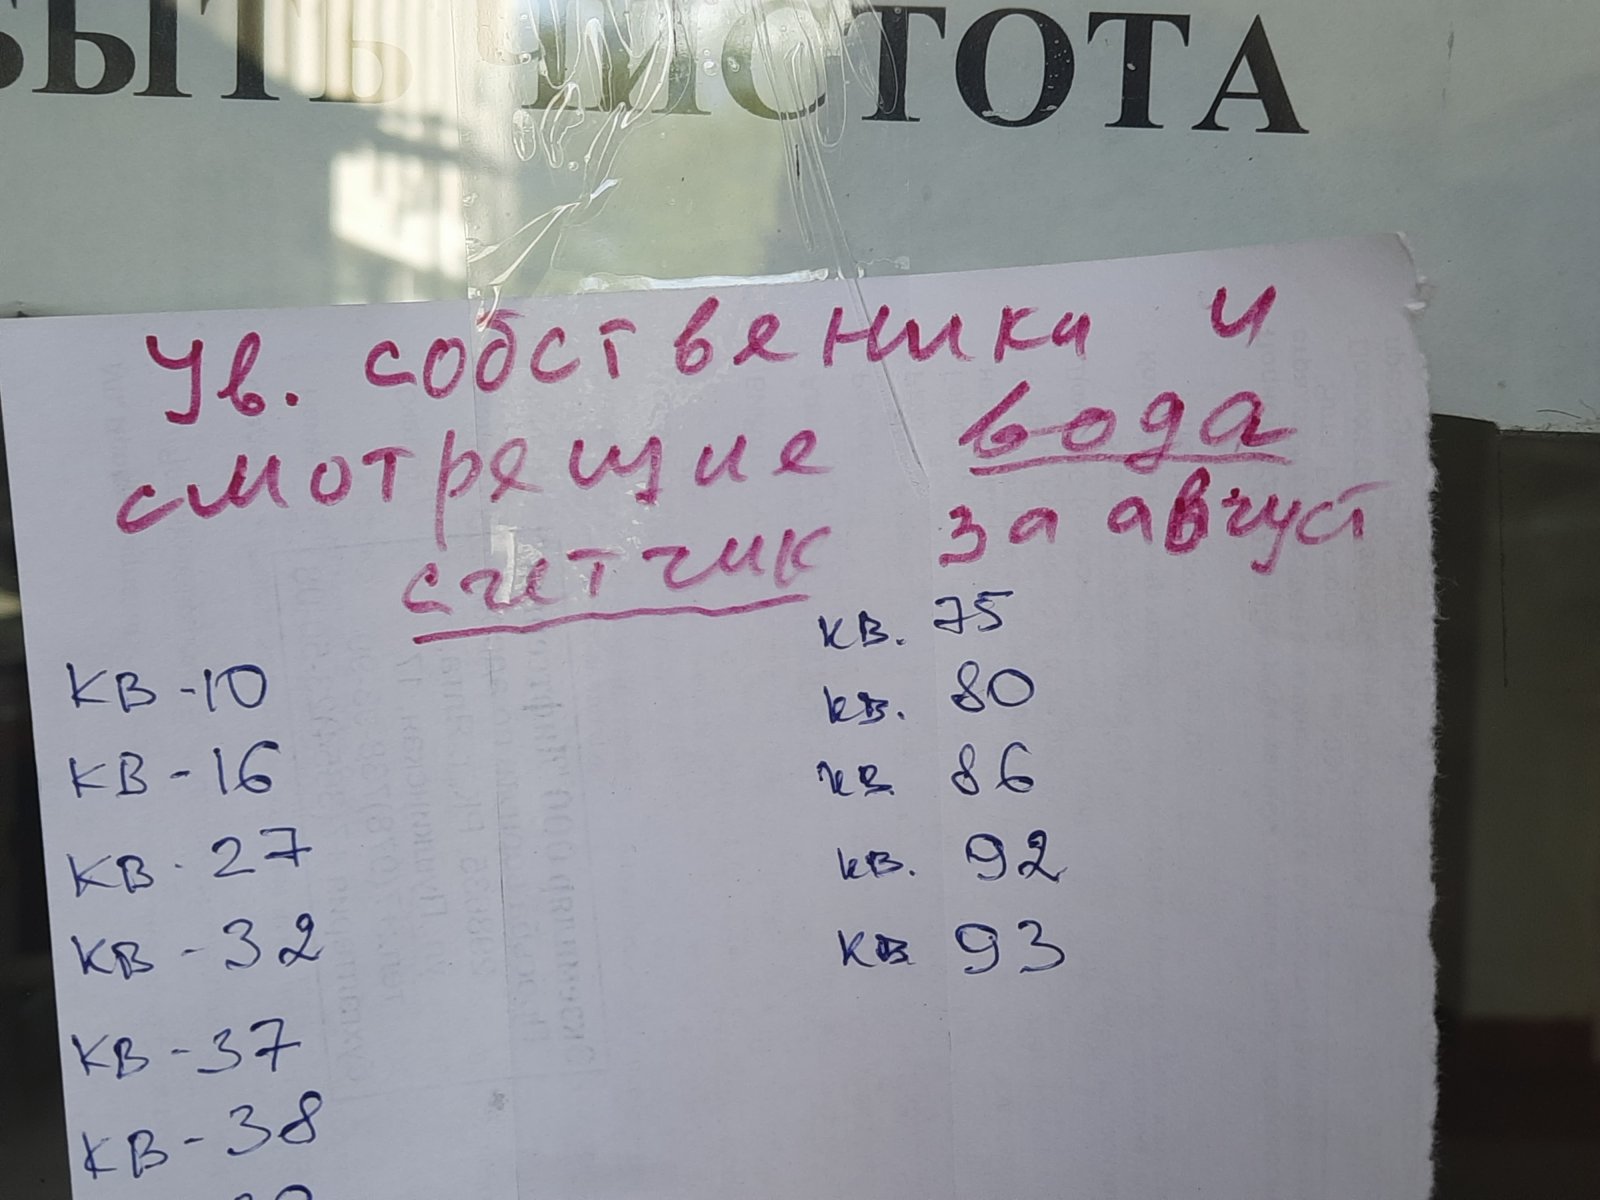 БЫТЬ ЧИСТОТА
Ув. собственики и
смотрещие вода
счетчик за август
кв. 75
КВ-10
кв. 80
КВ-16
кв 86
КВ-27
кв. 92
КВ-32
кв 93
КВ-37
КВ-38